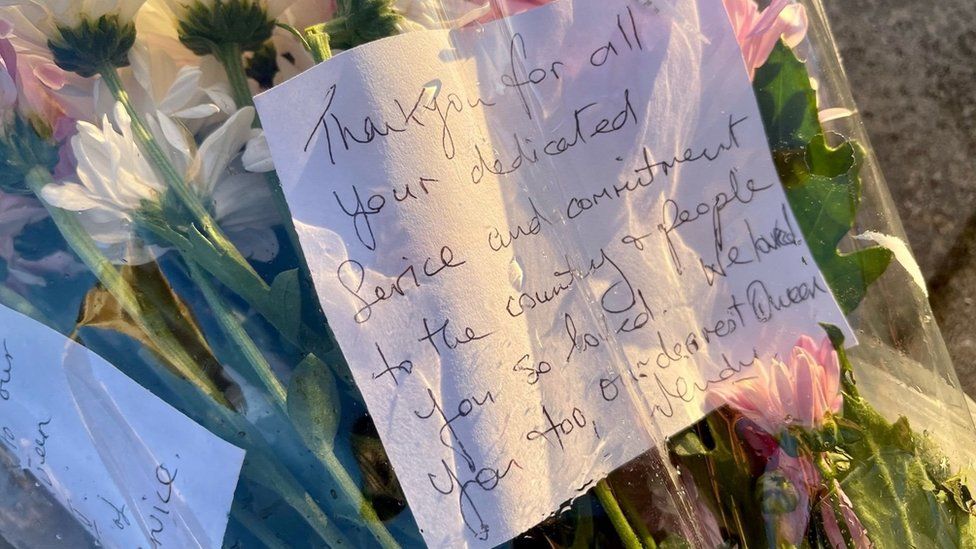 Thankyou for all
your dedicated
Service and commitment
to the country & people
you so loved. We loved
you too, our dearest Queen
Wendy
to our
Queen
of
Service.